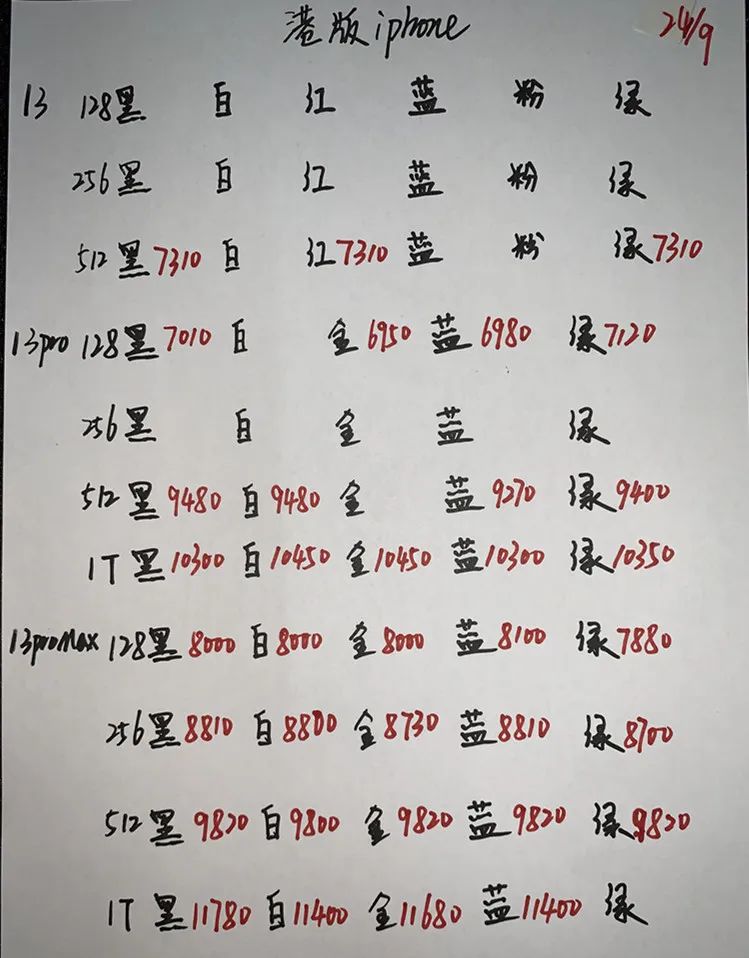 港版iphone 24/9
13 128黑 白 红 蓝 粉 绿
256黑 白 红 蓝 粉 绿
512黑7310 白 红7310 蓝 粉 绿7310
13pro 128黑7010 白 金6950 蓝6980 绿7120
256黑 白 金 蓝 绿
512黑9480 白9480 金 蓝9270 绿9400
1T黑10300 白10450 金10450 蓝10300 绿10350
13proMax 128黑8000 白8000 金8000 蓝8100 绿7880
256黑8810 白8800 金8730 蓝8810 绿8700
512黑9820 白9800 金9820 蓝9820 绿9820
1T黑11780 白11400 金11680 蓝11400 绿